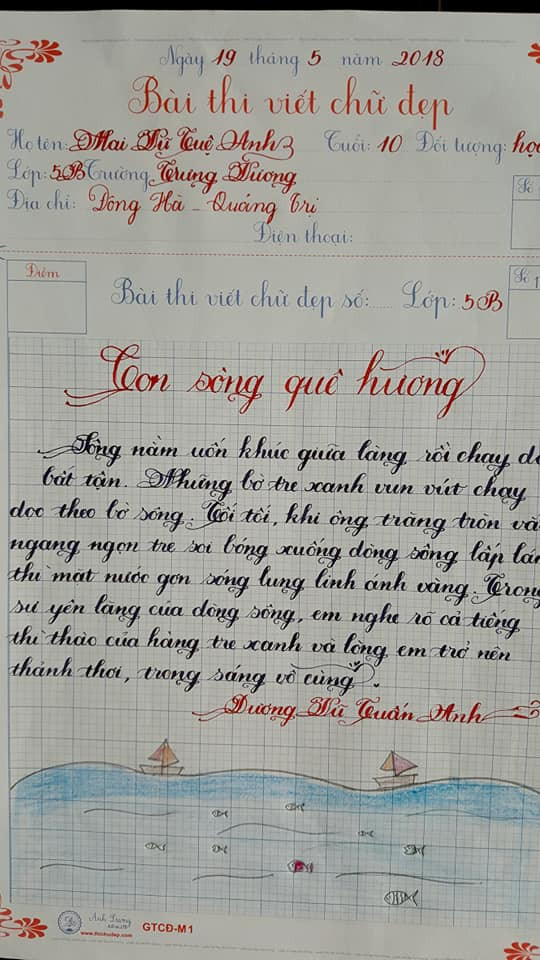 Ngày 19 tháng 5 năm 2018
Bài thi viết chữ đẹp
Họ tên: Mai Vũ Tuệ Anh Tuổi: 10 Đối tượng: học
Lớp: 5B Trường Trưng Vương
Địa chỉ: Đông Hà - Quảng Trị
Số
Điện thoại:
Điểm
Bài thi viết chữ đẹp số:...... Lớp: 5B
Số 1
Con sông quê hương
Sông nằm uốn khúc giữa làng rồi chạy d
bất tận. Những bờ tre xanh vun vút chạy
dọc theo bờ sông. Tối tối, khi ông trăng tròn vắ
ngang ngọn tre soi bóng xuống dòng sông lấp lán
thì mặt nước gợn sóng lung linh ánh vàng. Trong
sự yên lặng của dòng sông, em nghe rõ cả tiếng
thì thào của hàng tre xanh và lòng em trở nên
thảnh thơi, trong sáng vô cùng.
Dương Vũ Tuấn Anh
Ánh Dương
www.thichudep.com
GTCĐ-M1